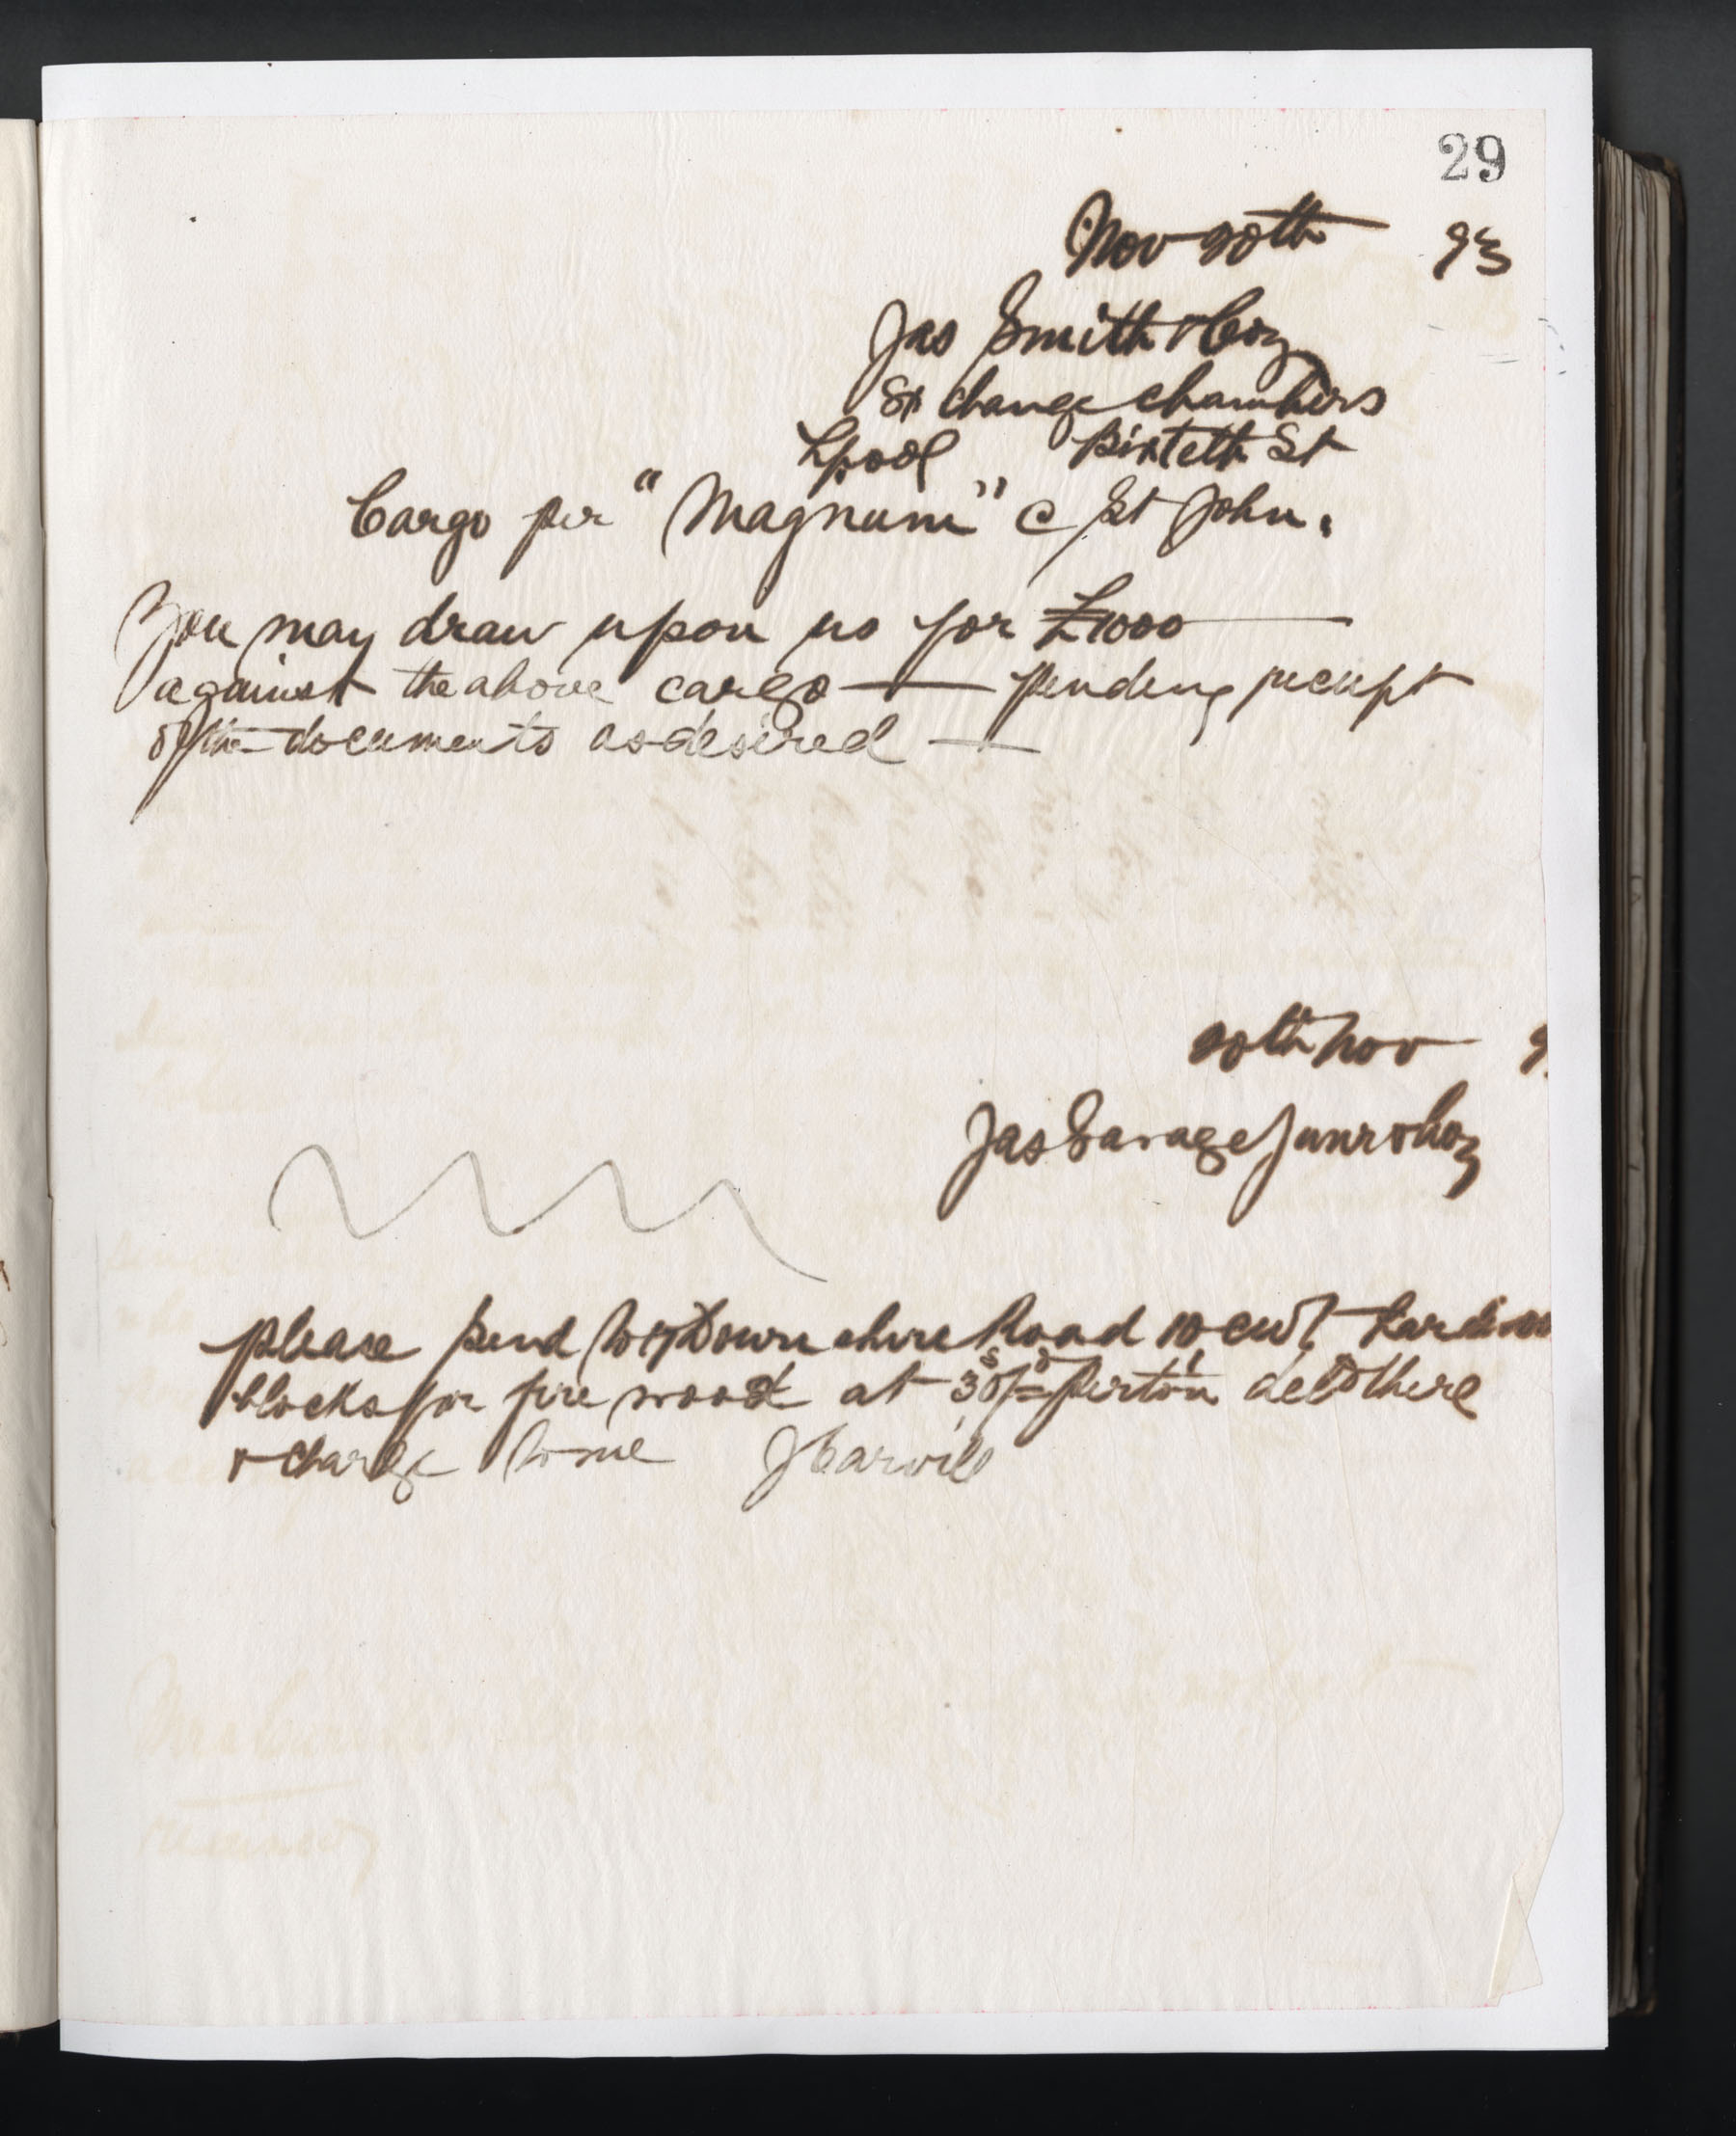 29
Nov 20th 93
Jas Smith & Coy
Exchange Chambers
Lpool Bixteth St
Cargo per "Magnum" c/ St John.
You may draw upon us for £1000
against the above cargo — pending receipt
of the documents as desired —
20th Nov 9
Jas Savage Junr & Coy
please send to Downshire Road 10 cwt hardwoo
blocks for fire wood at 30s/= per ton deld there
& charge to me J Carvill